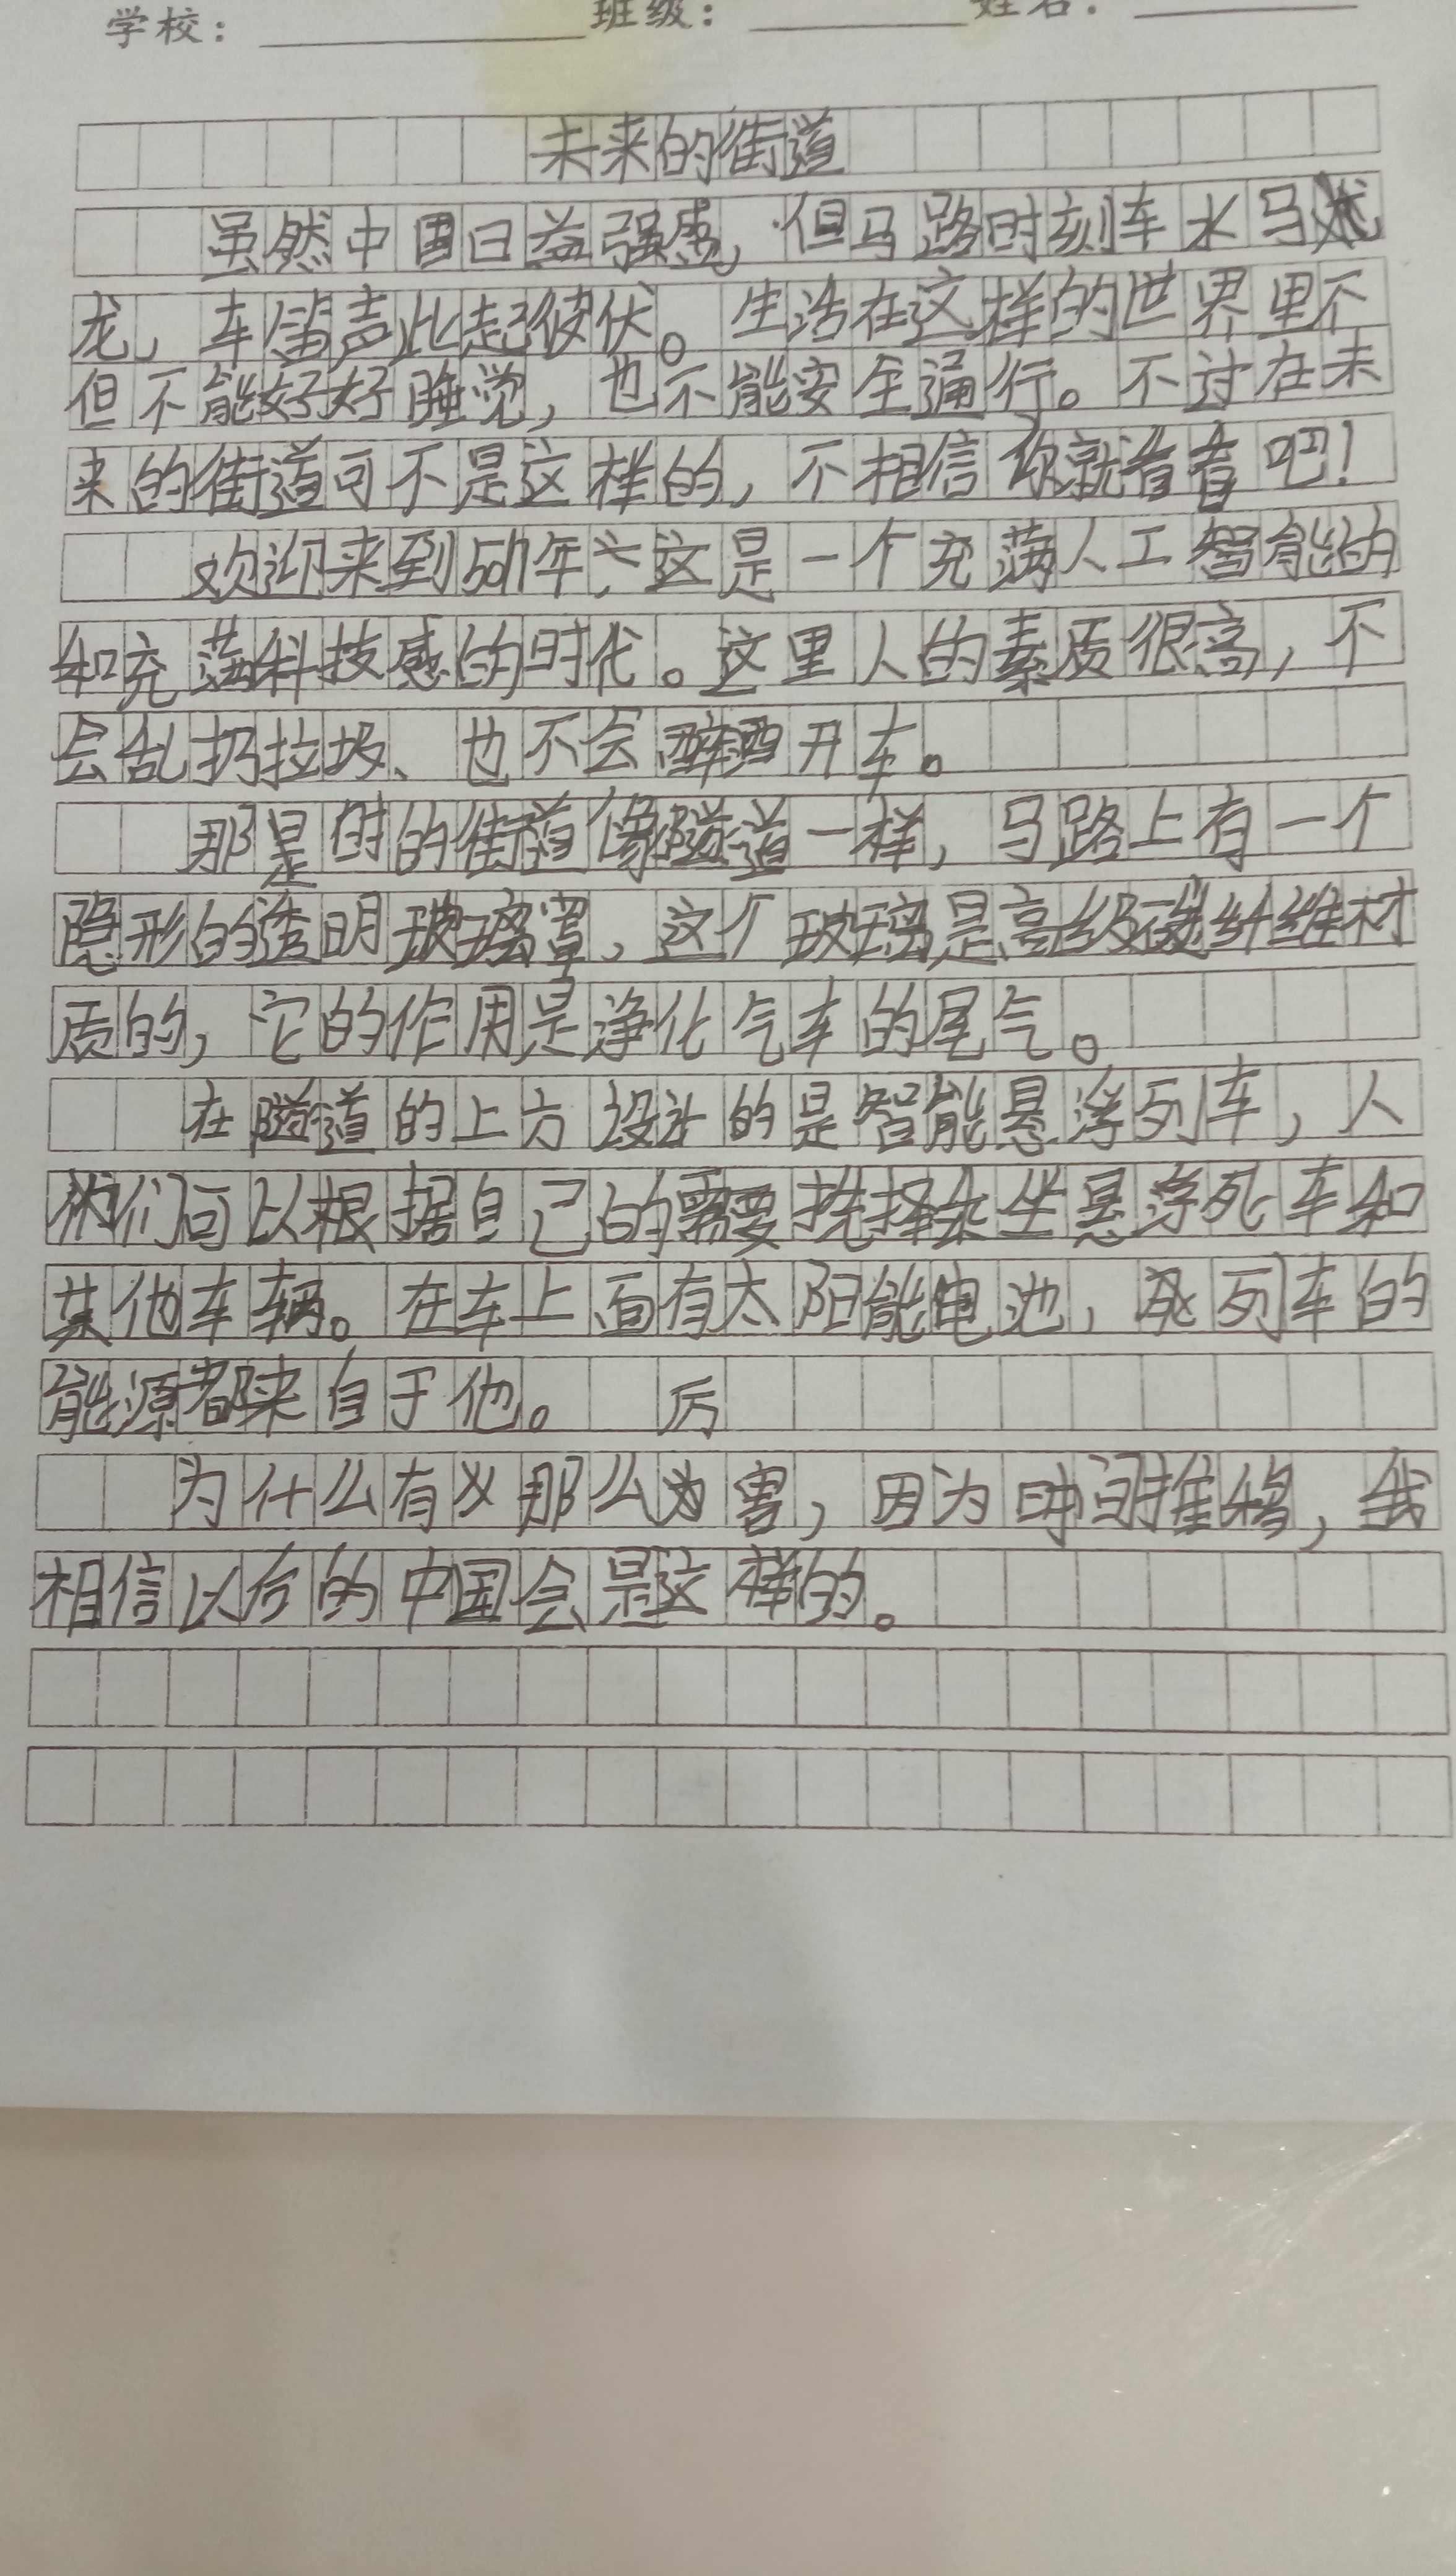 学校： 班级： 姓名：
未来的街道
虽然中国日益强盛，但马路时刻车水马
龙，车笛声此起彼伏。生活在这样的世界里不
但不能好好睡觉，也不能安全通行。不过在未
来的街道可不是这样的，不相信你就看看吧！
欢迎来到50年，这是一个充满人工智能的
和充满科技感的时代。这里人的素质很高，不
会乱扔垃圾、也不会醉酒开车。
那是时的街道像隧道一样，马路上有一个
隐形的透明玻璃罩，这个玻璃是高级碳纤维材
质的，它的作用是净化气车的尾气。
在隧道的上方设计的是智能悬浮列车，人
们可以根据自己的需要挑择乘坐悬浮列车和
其他车辆。在车上面有太阳能电池，列车的
能源都来自于他。 厉
为什么有那么害，因为时间推移，我
相信以后的中国会是这样的。